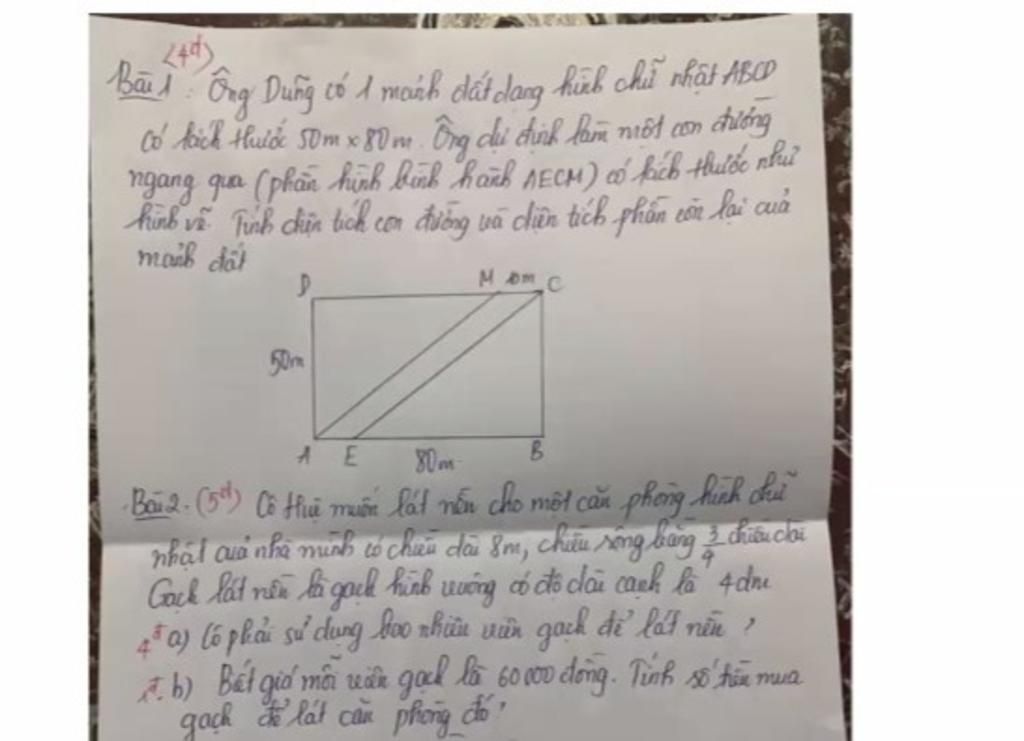 (4đ)
Bài 1: Ông Dũng có 1 mảnh đất dạng hình chữ nhật ABCD
có kích thước 50m x 80m. Ông dự định làm một con đường
ngang qua (phần hình bình hành AECM) có kích thước như
hình vẽ. Tính diện tích con đường và diện tích phần còn lại của
mảnh đất
D M C
50m
A E 80m B
Bài 2. (5đ) Cô Huệ muốn lát nền cho một căn phòng hình chữ
nhật của nhà mình có chiều dài 8m, chiều rộng bằng 3/4 chiều dài
Gạch lát nền là gạch hình vuông có độ dài cạnh là 4dm
4đ a) Cô phải sử dụng bao nhiêu viên gạch để lát nền ?
1đ. b) Biết giá mỗi viên gạch là 60 000 đồng. Tính số tiền mua
gạch để lát căn phòng đó ?